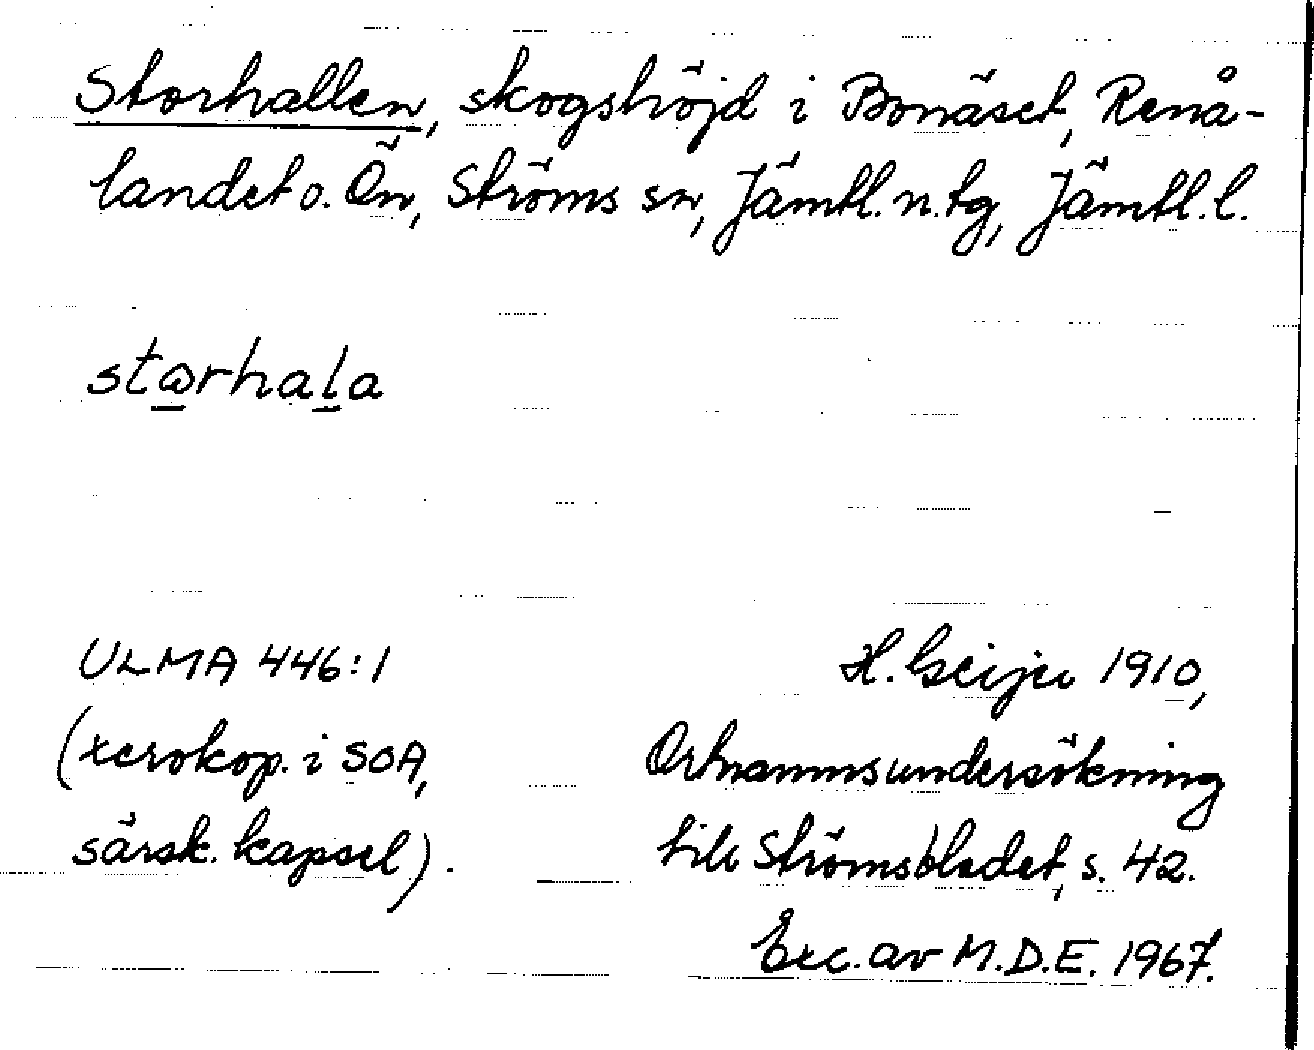 Storhallen, skogshöjd i Bonäset, Renå-
landet o. Ön, Ströms sn, Jämtl. n. tg, Jämtl. l.
stɷrhala
ULMA 446:1
(xerokop. i SOA,
särsk. kapsel).
H. Geijer 1910,
Ortnamnsundersökning
till Strömsbladet, s. 42.
Exc. av M.D.E. 1967.